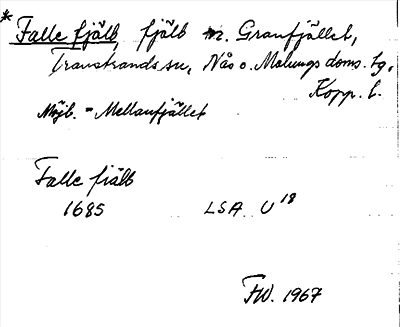 * Falle fjälb, fjälb n. Granfjället,
Transtrands sn, Nås o. Malungs doms. tg,
Kopp. l.
Möjl. = Mellanfjället
Falle fiälb
1685 LSA U 18
FW. 1967